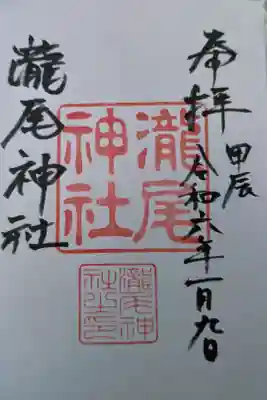 奉拝
甲辰
令和六年一月九日
瀧尾
神社
瀧尾神社
瀧尾神
社之印